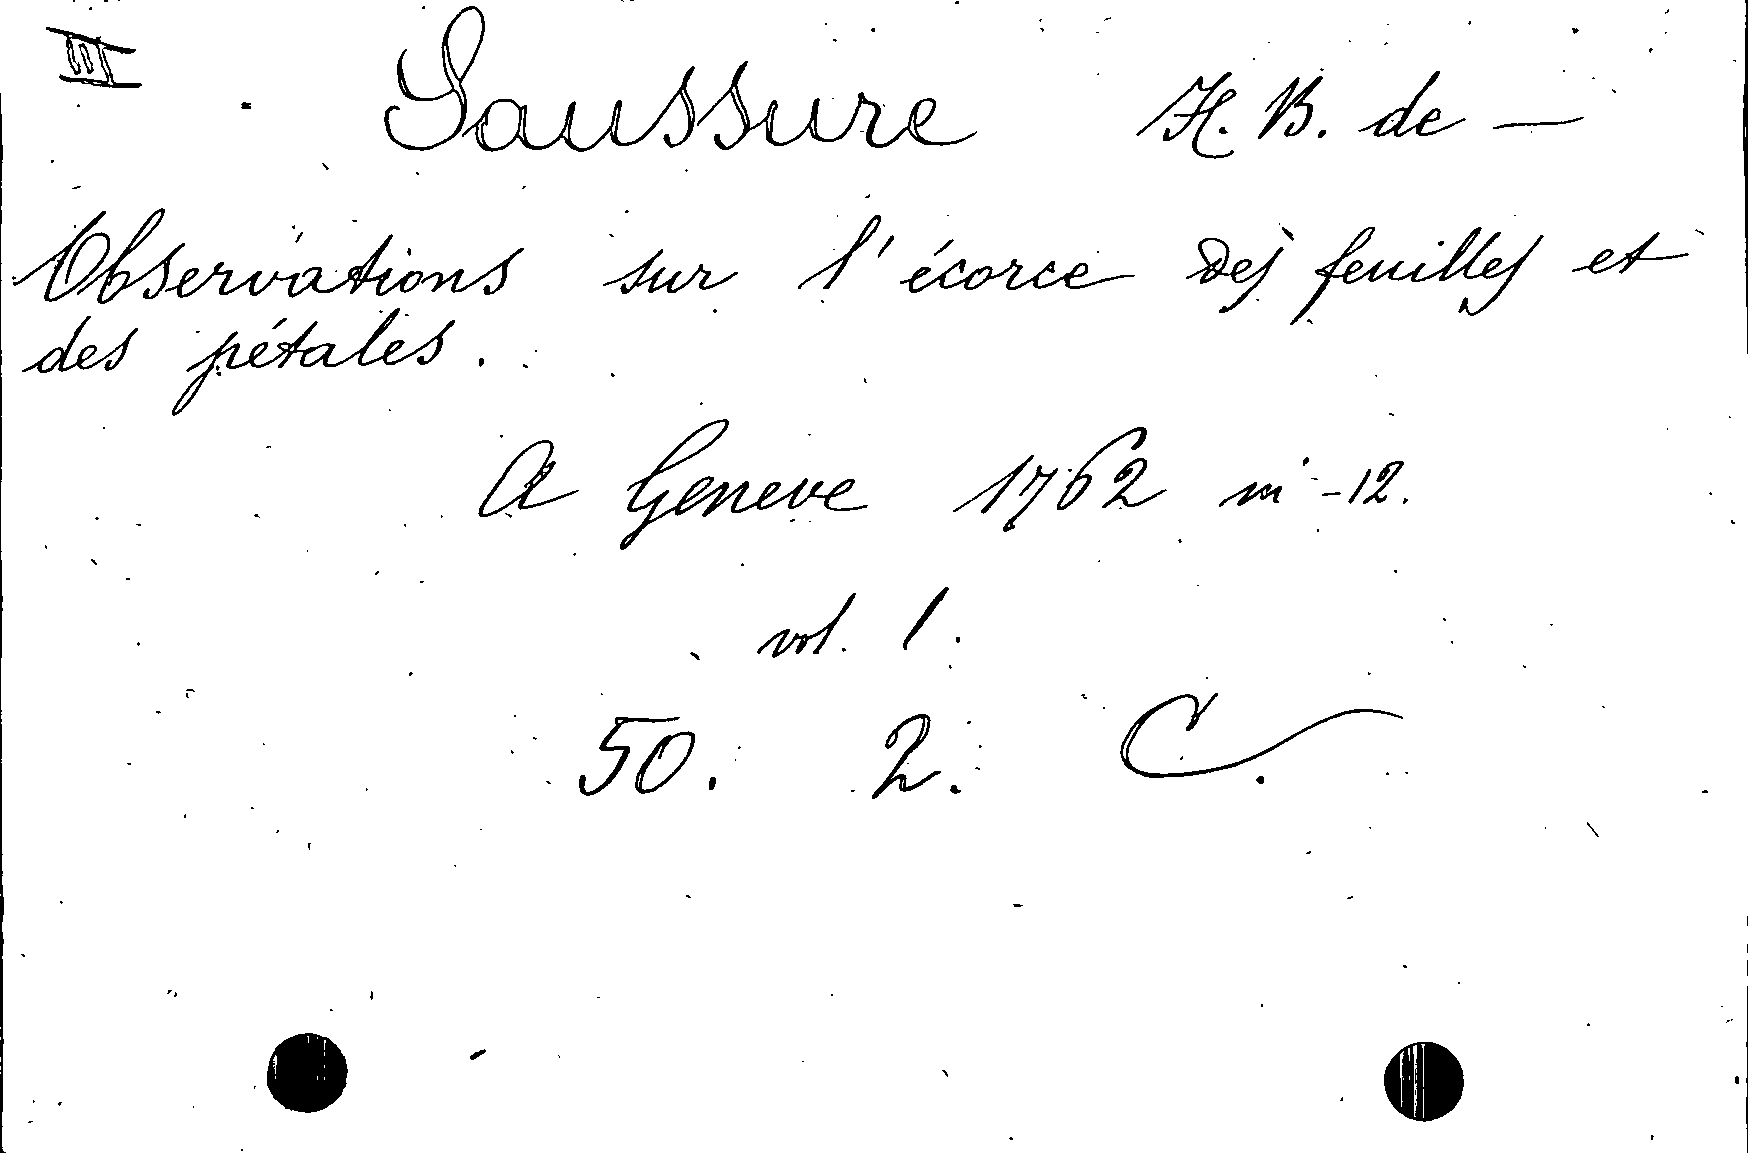 III
Saussure H. B. de —
Observations sur l'écorce des feuilles et
des pétales.
A Geneve 1762 in-12.
vol. 1.
50. 2. C.